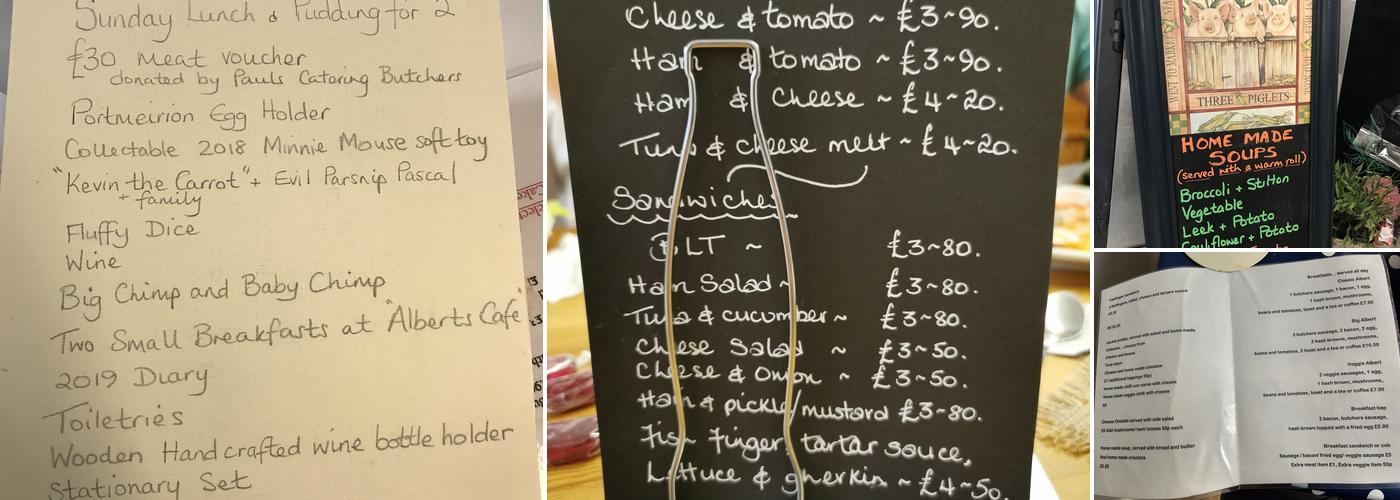 Sunday Lunch & Pudding for 2
£30 meat voucher
donated by Pauls Catering Butchers
Portmeirion Egg Holder
Collectable 2018 Minnie Mouse soft toy
"Kevin the Carrot" + Evil Parsnip Pascal
+ family
Fluffy Dice
Wine
Big Chimp and Baby Chimp
Two Small Breakfasts at "Alberts Cafe"
2019 Diary
Toiletries
Wooden Handcrafted wine bottle holder
Stationary Set
Cheese & tomato ~ £3~90.
Ham & tomato ~ £3~90.
Ham & Cheese ~ £4~20.
Tuna & cheese melt ~ £4~20.
Sandwiches
BLT ~ £3~80.
Ham Salad ~ £3~80.
Tuna & cucumber ~ £3~80.
Cheese Salad ~ £3~50.
Cheese & Onion ~ £3~50.
Ham & pickle/mustard £3~80.
Fish finger, tartar sauce,
Lettuce & gherkin ~ £4~50.
THREE PIGLETS
HOME MADE
SOUPS
(served with a warm roll)
Broccoli + Stilton
Vegetable
Leek + Potato
Cauliflower + Potato
Fishfinger sandwich
4 fishfingers, salad, cheese and tartare sauce
Jacket potato, served with salad and home made
Coleslaw... choose from
Cheese and beans
Tuna mayo
Cheese and home made coleslaw
£7 (additional toppings 50p)
Home made chilli con carne with cheese
Home made veggie chilli with cheese
£8
Cheese Omlette served with side salad
£6 Add mushrooms/ ham/ tomato 50p each
Home made soup, served with bread and butter
And home made croutons
£5.50
Breakfasts... served all day
Classic Albert
1 butchers sausage, 1 bacon, 1 egg,
1 hash brown, mushrooms,
beans and tomatoes, toast and a tea or coffee £7.90
Big Albert
2 butchers sausage, 2 bacon, 2 egg,
2 hash browns, mushrooms,
beans and tomatoes, 2 toast and a tea or coffee £10.50
Veggie Albert
2 veggie sausages, 1 egg,
1 hash brown, mushrooms,
beans and tomatoes, toast and a tea or coffee £7.90
Breakfast bap
2 bacon, butchers sausage,
hash brown topped with a fried egg £5.90
Breakfast sandwich or cob
Sausage/ bacon/ fried egg/ veggie sausage £5
Extra meat item £1, Extra veggie item 50p